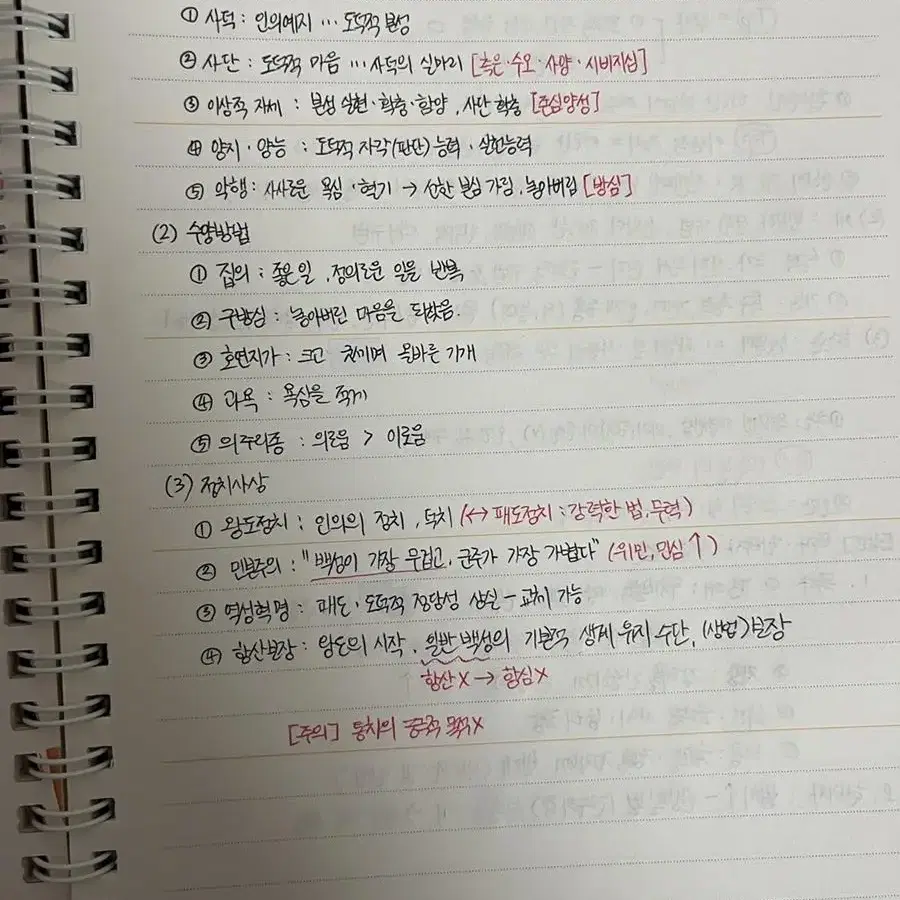 ① 사덕 : 인의예지 … 도덕적 본성
② 사단 : 도덕적 마음 … 사덕의 실마리 [측은·수오·사양·시비지심]
③ 이상적 자세 : 본성 실현·확충·함양, 사단 확충 [존심양성]
④ 양지·양능 : 도덕적 자각(판단)능력·실천능력
⑤ 악행 : 사사로운 욕심·혈기 → 선한 본심 가림, 놓아버림 [방심]
(2) 수양방법
① 집의 : 옳은 일, 정의로운 일을 반복
② 구방심 : 놓아버린 마음을 되찾음.
③ 호연지기 : 크고 올바른 기개
④ 과욕 : 욕심을 적게
⑤ 의주리종 : 의로움 > 이로움
(3) 정치사상
① 왕도정치 : 인의의 정치, 덕치 (↔ 패도정치 : 강력한 법, 무력)
② 민본주의 : "백성이 가장 무겁고, 군주가 가장 가볍다" (위민, 민심↑)
③ 역성혁명 : 패도·도덕적 정당성 상실 - 교체 가능
④ 항산보장 : 왕도의 시작, 일반 백성의 기본적 생계 유지 수단, (생업)보장
항산X → 항심X
[주의] 통치의 궁극 목적X